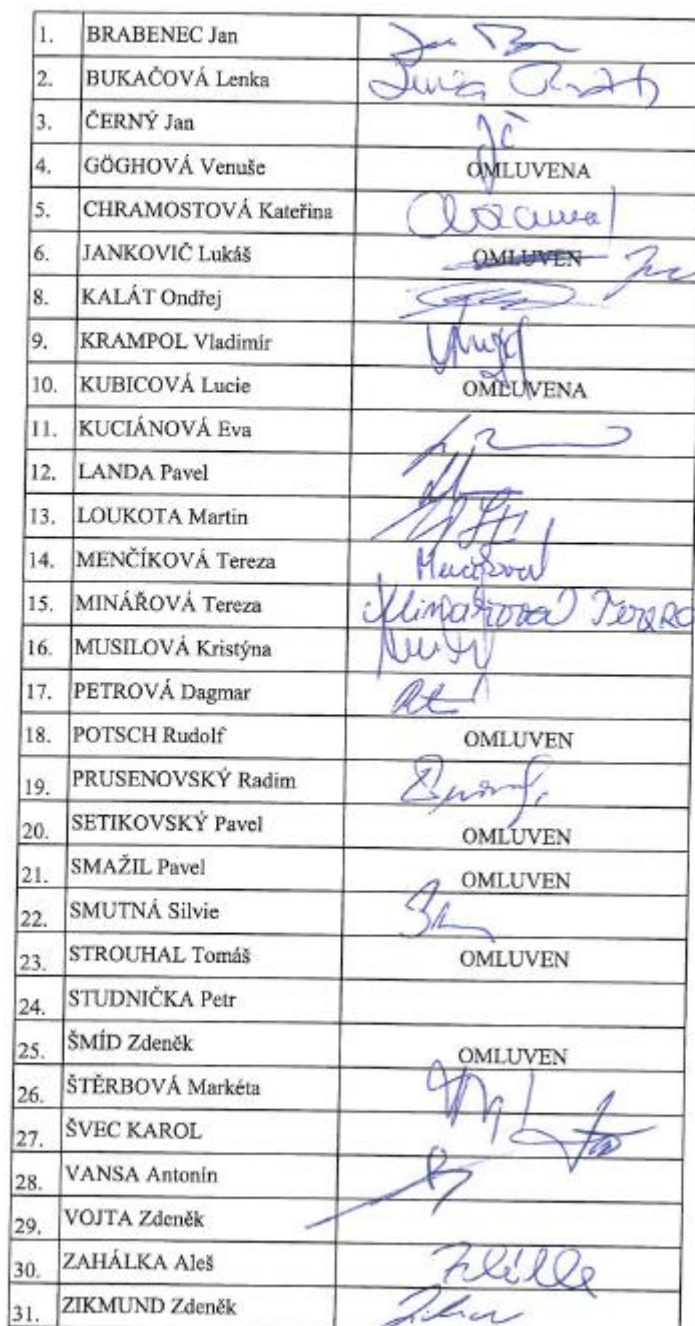 1. BRABENEC Jan
2. BUKAČOVÁ Lenka
3. ČERNÝ Jan JČ
4. GÖGHOVÁ Venuše OMLUVENA
5. CHRAMOSTOVÁ Kateřina
6. JANKOVIČ Lukáš OMLUVEN
8. KALÁT Ondřej
9. KRAMPOL Vladimír
10. KUBICOVÁ Lucie OMLUVENA
11. KUCIÁNOVÁ Eva
12. LANDA Pavel
13. LOUKOTA Martin
14. MENČÍKOVÁ Tereza
15. MINÁŘOVÁ Tereza Minářová Tereza
16. MUSILOVÁ Kristýna
17. PETROVÁ Dagmar
18. POTSCH Rudolf OMLUVEN
19. PRUSENOVSKÝ Radim
20. SETIKOVSKÝ Pavel OMLUVEN
21. SMAŽIL Pavel OMLUVEN
22. SMUTNÁ Silvie
23. STROUHAL Tomáš OMLUVEN
24. STUDNIČKA Petr
25. ŠMÍD Zdeněk OMLUVEN
26. ŠTĚRBOVÁ Markéta
27. ŠVEC KAROL
28. VANSA Antonín
29. VOJTA Zdeněk
30. ZAHÁLKA Aleš
31. ZIKMUND Zdeněk